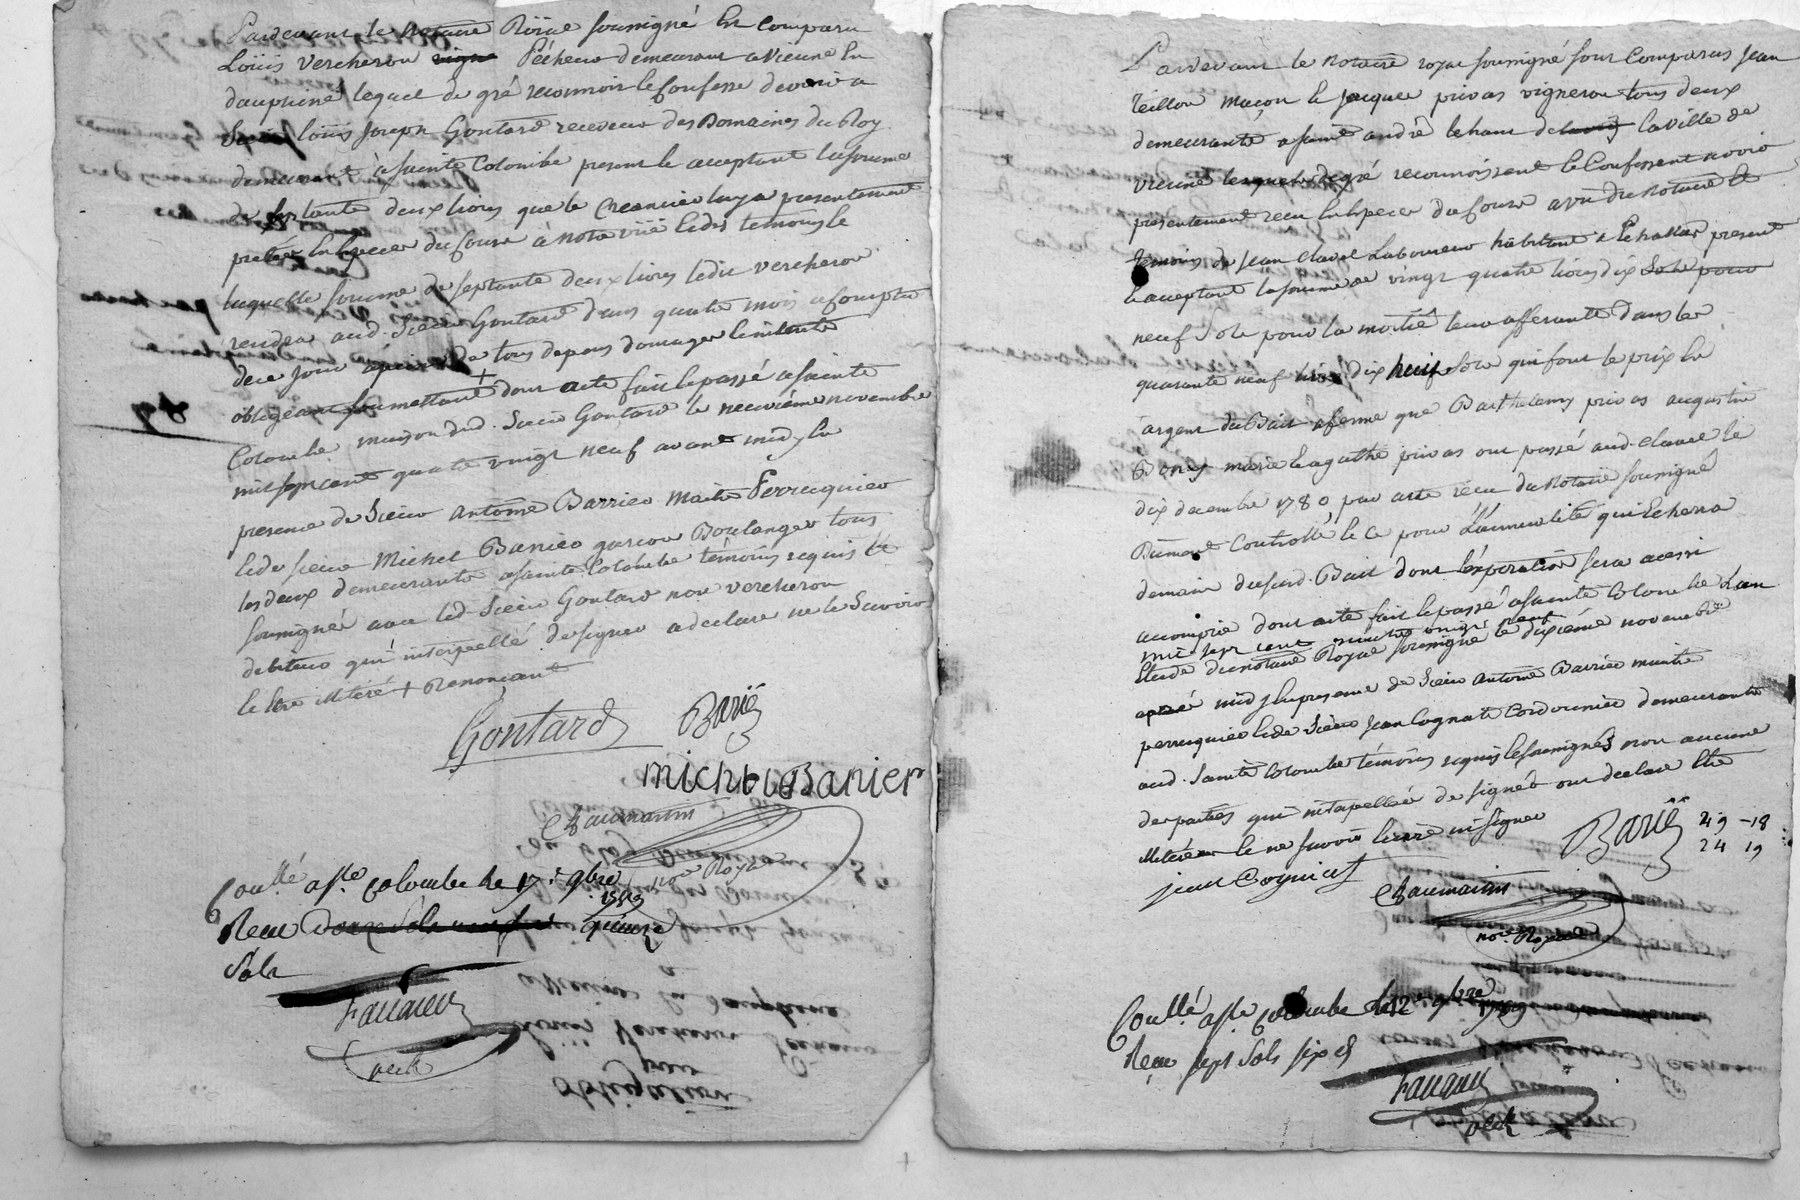 Pardevant le Notaire Roÿal soussigné est comparu
Loüis Vercheron Pécheur demeurant a Vienne en
dauphiné lequel de gré reconnoit & Confesse devoir a
Sieur loüis Joseph Gontard receveur des Domaines du Roy
demeurant a sainte Colombe present & acceptant la somme
de septante deux livres que le Creancier luy a presentement
pretée en Especes du Cours à notre vüe & des temoins &
laquelle somme de septante deux livres ledit vercheron
rendra aud. Sieur Gontard dans quatre mois a Compter
de ce jour a peine de tous depens domages & interets
obligeant soumettant + dont acte fait & passé a sainte
Colombe maison dud. Sieur Gontard le neuvième novembre
mil sept cent quatre vingt neuf avant midy En
presence de Sieur Antoine Barrier Maitre Perruquier
& de sieur Michel Banier garcon Boulanger tous
les deux demeurants a sainte Colombe témoins requis &
soussignés avec led. Sieur Gontard non vercheron
debiteur qui interpellé de signer a declaré ne le Scavoir
& Etre illiteré + Renoncant
Gontard Barié
michel Banier
Chaumartin
nore Royal
Conllé a ste colombe le 17e 9bre
1789
Recu douze Sols quinze
Sols
Pardevant le notaire royal soussigné sont Comparus Jean
Teillon maçon & jacques privas vigneron tous deux
demeurants a saint andré le haut de la ville de
vienne lesquels de gré reconnoissent & Confessent avoir
présentement recu en Especes du Cours a vue du Notaire &
temoins de Jean Clavel Laboureur habitant a Echallas present
& acceptant la somme de vingt quatre livres dix
neuf Sols pour la moitié leur afferante dans les
quarante neuf livres dix huit Sols qui font le prix En
argent du Bail a ferme que Barthelemy privas augustin
Bony marie & agathe privas ont passé aud. Clavel le
dix decembre 1780, par acte recu du Notaire soussigné
Dûment Controllé & Ce pour l'annuelité qui Echerra
demain dususd. Bail dont l'Experation sera aussi
accomplie dont acte fait & passé a sainte Colombe L'an
mil sept cent quatre vingt neuf
Etude du notaire Royal soussigné le dixième novembre
après midy En presence de Sieur Antoine Barrier maitre
perruquier & de Sieur jean Cognat Cordonnier demeurants
aud. Sainte Colombe témoins requis & soussignés non aucune
des parties qui interpellées de signer ont declaré Etre
illiterées & ne savoir Ecrire ni signer
Barié 49 - 18
24 19
jean Cogniat
Chaumartin
nore Royal
Conllé a ste colombe le 12e 9bre 1789
Recu sept Sols six ds